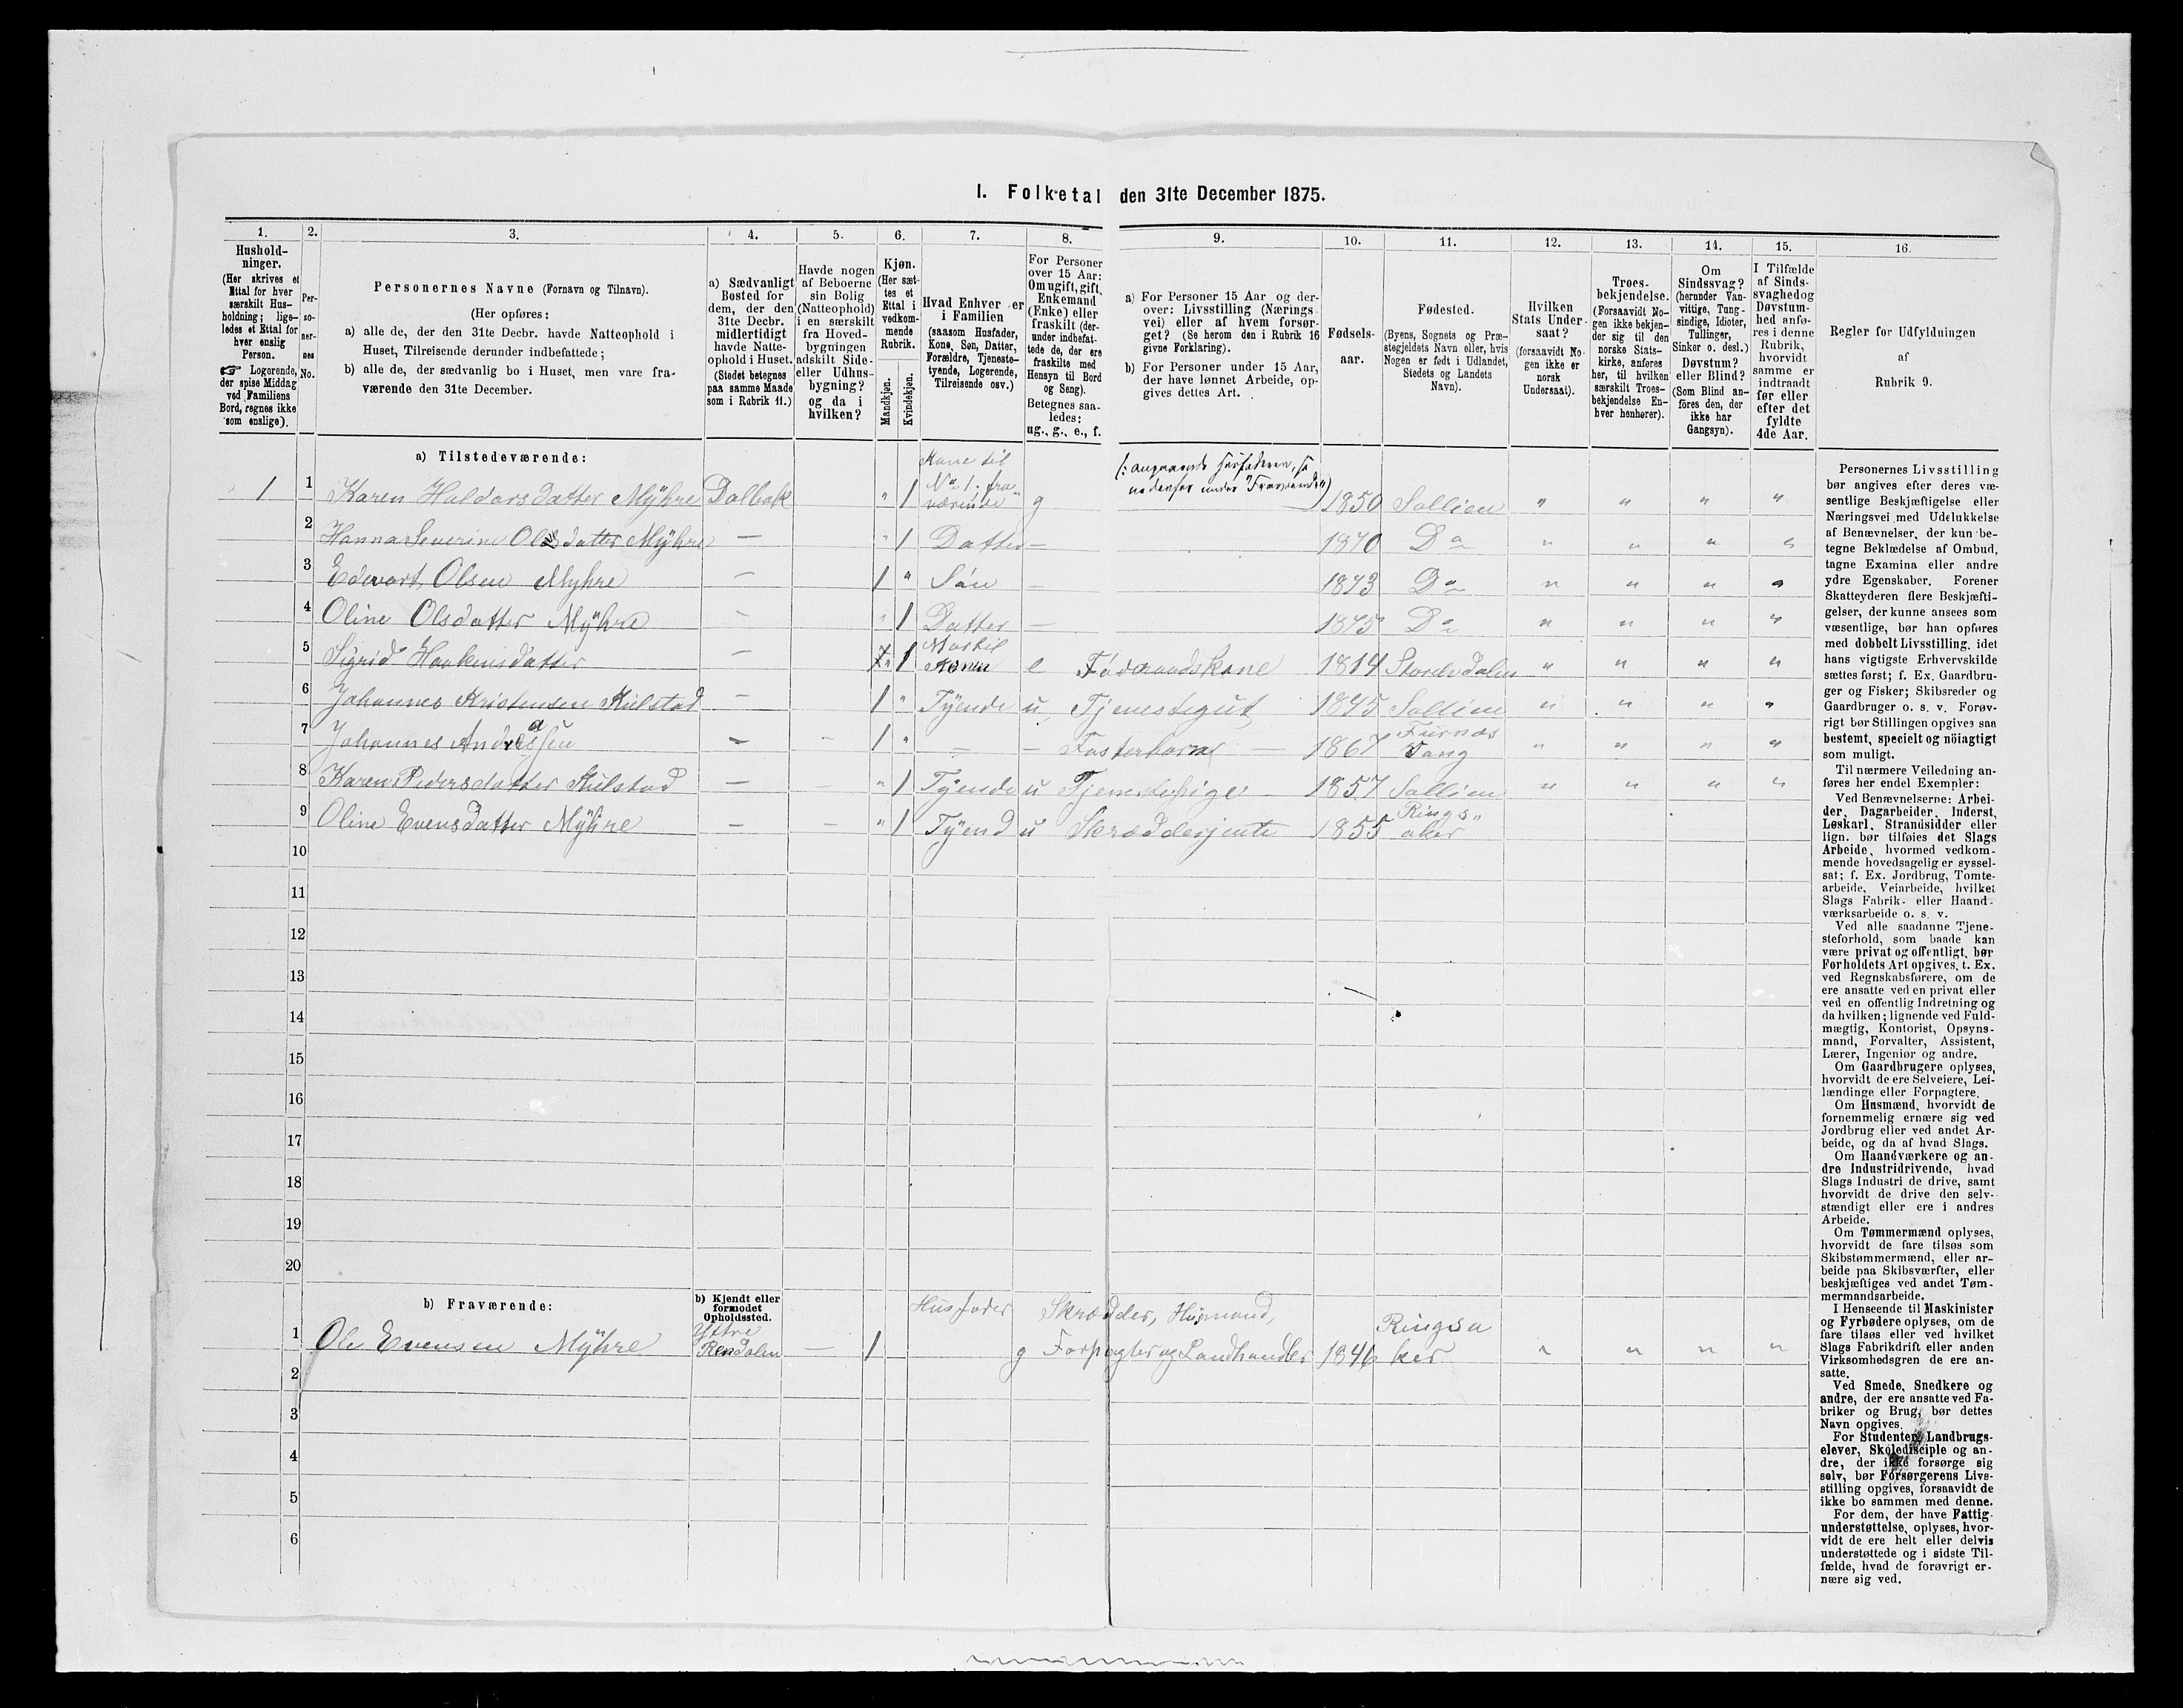 I. Folketal den 31te December 1875.
1. 2. 3. 4. 5. 6. 7. 8. 9. 10. 11. 12. 13. 14. 15. 16.
Hushold-
ninger.
(Her skrives et
Ettal for hver
særskilt Hus-
holdning; lige-
ledes et Ettal for
hver enslig
Person.
☞ Logerende,
der spise Middag
ved Familiens
Bord, regnes ikke
som enslige).
Per-
so-
ner-
nes
No.
Personernes Navne (Fornavn og Tilnavn).
(Her opføres:
a) alle de, der den 31te Decbr. havde Natteophold i
Huset, Tilreisende derunder indbefattede;
b) alle de, der sædvanlig bo i Huset, men vare fra-
værende den 31te December.
a) Sædvanligt
Bosted for
dem, der den
31te Decbr.
midlertidigt
havde Natte-
ophold i Huset.
(Stedet betegnes
paa samme Maade
som i Rubrik 11.)
Havde nogen
af Beboerne
sin Bolig
(Natteophold)
i en særskilt
fra Hoved-
bygningen
adskilt Side-
eller Udhus-
bygning?
og da i
hvilken?
Kjøn.
(Her sæt-
tes et
Ettal i
vedkom-
mende
Rubrik.
Mandkjøn.
Kvindekjøn.
Hvad Enhver er
i Familien
(saasom Husfader,
Kone, Søn, Datter,
Forældre, Tjeneste-
tyende, Logerende,
Tilreisende osv.)
For Personer
over 15 Aar:
Om ugift, gift,
Enkemand
(Enke) eller
fraskilt (der-
under indbefat-
tede de, der ere
fraskilte med
Hensyn til Bord
og Seng).
Betegnes saa-
ledes:
ug., g., e., f.
a) For Personer 15 Aar og der-
over: Livsstilling (Nærings-
vei) eller af hvem forsør-
get? (Se herom den i Rubrik 16
givne Forklaring).
b) For Personer under 15 Aar,
der have lønnet Arbeide, op-
gives dettes Art.
Fødsels-
aar.
Fødested.
(Byens, Sognets og Præ-
stegjeldets Navn eller, hvis
Nogen er født i Udlandet,
Stedets og Landets
Navn).
Hvilken
Stats Under-
saat?
(forsaavidt No-
gen ikke er
norsk
Undersaat).
Troes-
bekjendelse.
(Forsaavidt No-
gen ikke bekjen-
der sig til den
norske Stats-
kirke, anføres
her, til hvilken
særskilt Troes-
bekjendelse En-
hver henhører).
Om
Sindssvag?
(herunder Van-
vittige, Tung-
sindige, Idioter,
Tullinger,
Sinker o. desl.)
Døvstum?
eller Blind?
(Som Blind an-
føres den, der
ikke har
Gangsyn).
I Tilfælde
af Sinds-
svaghed og
Døvstum-
hed anfø-
res i denne
Rubrik,
hvorvidt
samme er
indtraadt
før eller
efter det
fyldte
4de Aar.
Regler for Udfyldningen
af
Rubrik 9.
a) Tilstedeværende:
Kone til
(: angaaende Husfaderen, se
No 1. fra-
nedenfor under "Fraværende")
1 1 Karen Haldorsdatter Myhre Dalbak " 1 værende g 1850 Sollien " " " "
2 Hanna Severine Olsdatter Myhre — " 1 Datter — 1870 Do " " " "
3 Edvart Olsen Myhre — 1 " Søn — 1873 Do " " " "
4 Oline Olsdatter Myhre — " 1 Datter — 1875 Do " " " "
Mor til
5 Sigrid Haakensdatter — " 1 Konen e Føderaadskone 1814 Storelvdalen " " " "
6 Johannes Kristensen Kilstad — 1 " Tyende u Tjenestegut 1845 Sollien " " " "
Furnæs
7 Johannes Andersen — — 1 " — — Fosterbarn — 1867 Vang " " " "
8 Karen Pedersdatter Kilstad — — " 1 Tyende u Tjenestepige — 1857 Sollien " " " "
Rings"
9 Oline Evensdatter Myhre — — " 1 Tyend u Skrædderjente 1855 aker
10
11
12
13
14
15
16
17
18
19
20
b) Fraværende:
b) Kjendt eller
formodet
Opholdssted.
Husfader Skrædder, Husmand,
Yttre Ringsa
1 Ole Evensen Myhre Rendalen — 1 g Forpagter og Landhandler 1846 ker " " " "
2
3
4
5
6
Personernes Livsstilling
bør angives efter deres væ-
sentlige Beskjæftigelse eller
Næringsvei med Udelukkelse
af Benævnelser, der kun be-
tegne Beklædelse af Ombud,
tagne Examina eller andre
ydre Egenskaber. Forener
Skatteyderen flere Beskjæfti-
gelser, der kunne ansees som
væsentlige, bør han opføres
med dobbelt Livsstilling, idet
hans vigtigste Erhvervskilde
sættes først; f. Ex. Gaardbru-
ger og Fisker; Skibsreder og
Gaardbruger o. s. v. Forøv-
rigt bør Stillingen opgives saa
bestemt, specielt og nöiagtigt
som muligt.
Til nærmere Veiledning an-
føres her endel Exempler:
Ved Benævnelserne: Arbei-
der, Dagarbeider, Inderst,
Løskarl, Strandsidder eller
lign. bør tilføies det Slags
Arbeide, hvormed vedkom-
mende hovedsagelig er syssel-
sat; f. Ex. Jordbrug, Tomte-
arbeide, Veiarbeide, hvilket
Slags Fabrik- eller Haand-
værksarbeide o. s. v.
Ved alle saadanne Tjene-
steforhold, som baade kan
være privat og offentligt, bør
Forholdets Art opgives, t. Ex.
ved Regnskabsførere, om de
ere ansatte ved en privat eller
ved en offentlig Indretning og
da hvilken; lignende ved Fuld-
mægtig, Kontorist, Opsyns-
mand, Forvalter, Assistent,
Lærer, Ingeniør og andre.
Om Gaardbrugere oplyses,
hvorvidt de ere Selveiere, Lei-
lændinge eller Forpagtere.
Om Husmænd, hvorvidt de
fornemmelig ernære sig ved
Jordbrug eller ved andet Ar-
beide, og da af hvad Slags.
Om Haandværkere og an-
dre Industridrivende, hvad
Slags Industri de drive, samt
hvorvidt de drive den selv-
stændigt eller ere i andres
Arbeide.
Om Tømmermænd oplyses,
hvorvidt de fare tilsøs som
Skibstømmermænd, eller ar-
beide paa Skibsværfter, eller
beskjæftiges ved andet Tøm-
mermandsarbeide.
I Henseende til Maskinister
og Fyrbødere oplyses, om de
fare tilsøs eller ved hvilket
Slags Fabrikdrift eller anden
Virksomhedsgren de ere an-
satte.
Ved Smede, Snedkere og
andre, der ere ansatte ved Fa-
briker og Brug, bør dettes
Navn opgives.
For Studenter, Landbrugs-
elever, Skoledisciple og an-
dre, der ikke forsørge sig
selv, bør Forsørgerens Livs-
stilling opgives, forsaavidt de
ikke bo sammen med denne.
For dem, der have Fattig-
understøttelse, oplyses, hvor-
vidt de ere helt eller delvis
understøttede og i sidste Til-
fælde, hvad de forøvrigt er-
nære sig ved.